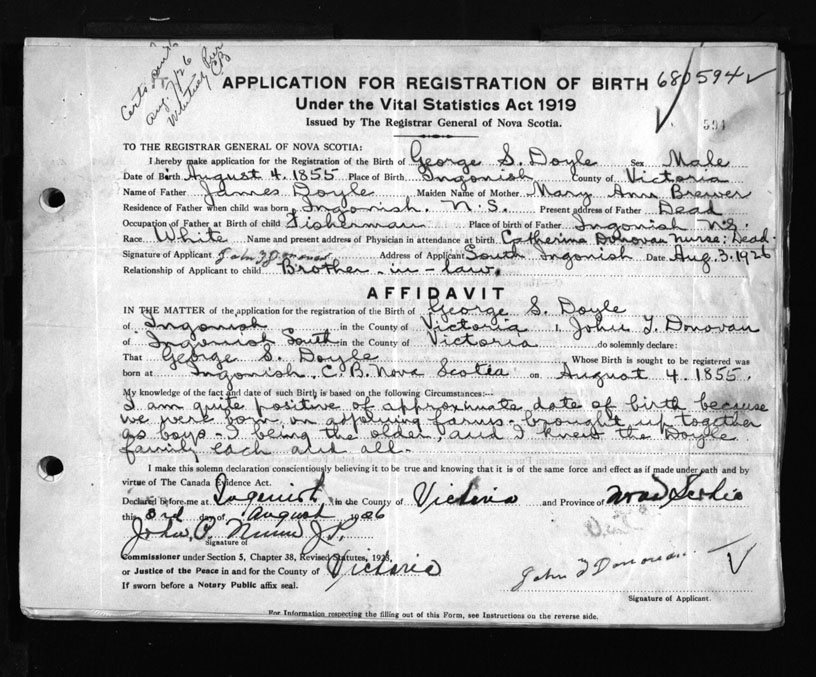 Certs sent
Aug 7/26
Whitney Pier
CB
APPLICATION FOR REGISTRATION OF BIRTH 680594 ✓
Under the Vital Statistics Act 1919
Issued by The Registrar General of Nova Scotia.
591
TO THE REGISTRAR GENERAL OF NOVA SCOTIA:
I hereby make application for the Registration of the Birth of George S. Doyle Sex Male
Date of Birth August 4. 1855 Place of Birth Ingonish County of Victoria
Name of Father James Doyle Maiden Name of Mother Mary Ann Brewer
Residence of Father when child was born Ingonish. N.S. Present address of Father Dead
Occupation of Father at Birth of child Fisherman Place of birth of Father Ingonish N.S.
Race White Name and present address of Physician in attendance at birth Catherine Donovan Nurse: Dead.
Signature of Applicant John T Donovan Address of Applicant South Ingonish Date Aug. 3. 1926
Relationship of Applicant to child Brother-in-law.
AFFIDAVIT
IN THE MATTER of the application for the registration of the Birth of George S. Doyle
of Ingonish in the County of Victoria I, John T. Donovan
of Ingonish South in the County of Victoria do solemnly declare:
That George S. Doyle Whose Birth is sought to be registered was
born at Ingonish, C.B. Nova Scotia on August 4. 1855.
My knowledge of the fact and date of such Birth is based on the following Circumstances:—
I am quite positive of approximate date of birth because
we were born on adjoining farms - brought up together
as boys - I being the older, and I knew the Doyle
family each and all.
I make this solemn declaration conscientiously believing it to be true and knowing that it is of the same force and effect as if made under oath and by
virtue of The Canada Evidence Act.
Declared before me at Ingonish in the County of Victoria and Province of Nova Scotia
this 3rd day of August 1926
John P. J.P.
Signature of
Commissioner under Section 5, Chapter 38, Revised Statutes, 1923,
or Justice of the Peace in and for the County of Victoria
If sworn before a Notary Public affix seal.
John T Donovan
Signature of Applicant.
For Information respecting the filling out of this Form, see Instructions on the reverse side.